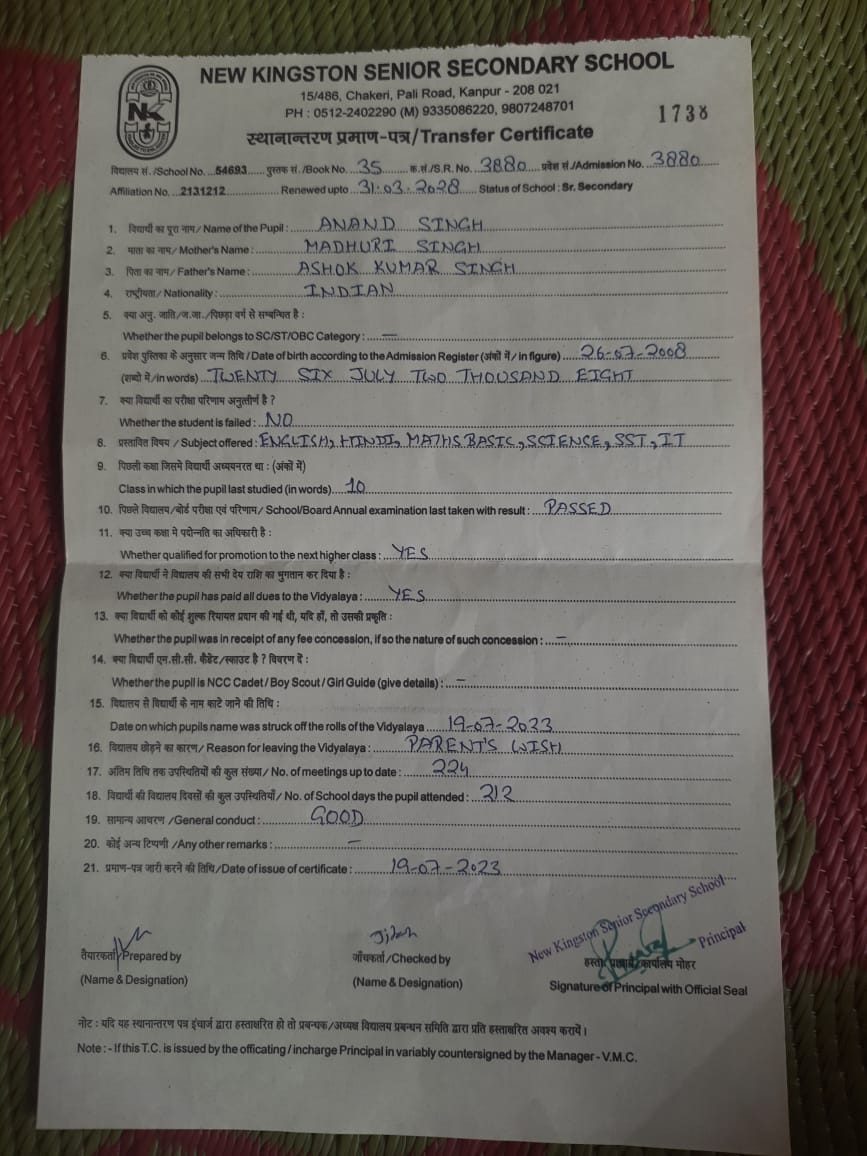 NEW KINGSTON SENIOR SECONDARY SCHOOL
15/486, Chakeri, Pali Road, Kanpur - 208 021
PH : 0512-2402290 (M) 9335086220, 9807248701
1738
NK
स्थानान्तरण प्रमाण-पत्र/Transfer Certificate
विद्यालय सं. /School No. ...54693... पुस्तक सं. /Book No. 35 क्र.सं./S.R. No. 3880 प्रवेश सं./Admission No. 3880
Affiliation No. ...2131212... Renewed upto 31.03.2028 Status of School : Sr. Secondary
1. विद्यार्थी का पूरा नाम/ Name of the Pupil : ANAND SINGH
2. माता का नाम/ Mother's Name : MADHURI SINGH
3. पिता का नाम/ Father's Name : ASHOK KUMAR SINGH
4. राष्ट्रीयता/ Nationality : INDIAN
5. क्या अनु. जाति/ज.जा./पिछड़ा वर्ग से सम्बन्धित है :
Whether the pupil belongs to SC/ST/OBC Category : —
6. प्रवेश पुस्तिका के अनुसार जन्म तिथि / Date of birth according to the Admission Register (अंकों में/ in figure) 26-07-2008
(शब्दो में/in words) TWENTY SIX JULY TWO THOUSAND EIGHT
7. क्या विद्यार्थी का परीक्षा परिणाम अनुत्तीर्ण है ?
Whether the student is failed : NO
8. प्रस्तावित विषय / Subject offered : ENGLISH, HINDI, MATHS BASIC, SCIENCE, SST, IT
9. पिछली कक्षा जिसमे विद्यार्थी अध्ययनरत था : (अंकों में)
Class in which the pupil last studied (in words) 10
10. पिछले विद्यालय/बोर्ड परीक्षा एवं परिणाम/ School/Board Annual examination last taken with result : PASSED
11. क्या उच्च कक्षा मे पदोन्नति का अधिकारी है :
Whether qualified for promotion to the next higher class : YES
12. क्या विद्यार्थी ने विद्यालय की सभी देय राशि का भुगतान कर दिया है :
Whether the pupil has paid all dues to the Vidyalaya : YES
13. क्या विद्यार्थी को कोई शुल्क रियायत प्रदान की गई थी, यदि हाँ, तो उसकी प्रकृति :
Whether the pupil was in receipt of any fee concession, if so the nature of such concession : —
14. क्या विद्यार्थी एन.सी.सी. कैडेट/स्काउट है ? विवरण दें :
Whether the pupil is NCC Cadet / Boy Scout / Girl Guide (give details) : —
15. विद्यालय से विद्यार्थी के नाम काटे जाने की तिथि :
Date on which pupils name was struck off the rolls of the Vidyalaya 19-07-2023
16. विद्यालय छोड़ने का कारण/ Reason for leaving the Vidyalaya : PARENT'S WISH
17. अंतिम तिथि तक उपस्थितियों की कुल संख्या/ No. of meetings up to date : 224
18. विद्यार्थी की विद्यालय दिवसों की कुल उपस्थितियाँ/ No. of School days the pupil attended : 212
19. सामान्य आचरण /General conduct : GOOD
20. कोई अन्य टिप्पणी /Any other remarks : —
21. प्रमाण-पत्र जारी करने की तिथि/Date of issue of certificate : 19-07-2023
New Kingston Senior Secondary School
Principal
तैयारकर्ता/Prepared by
(Name & Designation)
जाँचकर्ता/Checked by
(Name & Designation)
कार्यालय मोहर
Signature of Principal with Official Seal
नोट : यदि यह स्थानान्तरण पत्र इंचार्ज द्वारा हस्ताक्षरित हो तो प्रबन्धक/अध्यक्ष विद्यालय प्रबन्धन समिति द्वारा प्रति हस्ताक्षरित अवश्य करायें।
Note : - If this T.C. is issued by the officating / incharge Principal in variably countersigned by the Manager - V.M.C.